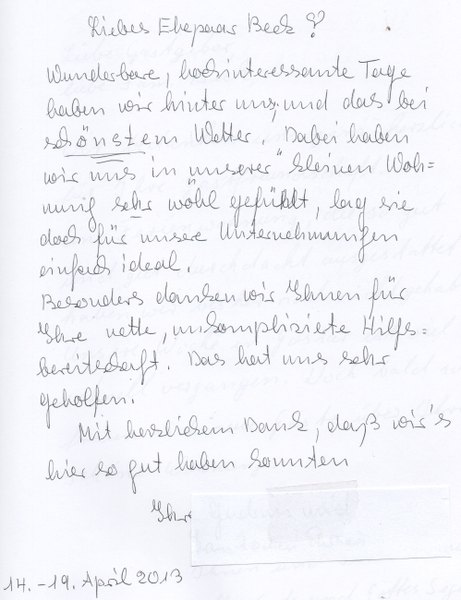 Liebes Ehepaar Beck ?
Wunderbare, hochinteressante Tage
haben wir hinter uns, und das bei
schönstem Wetter. Dabei haben
wir uns in unserer "kleinen Woh=
nung sehr wohl gefühlt, lag sie
doch für unsere Unternehmungen
einfach ideal.
Besonders danken wir Ihnen für
Ihre nette, unkomplizierte Hilfs=
bereitschaft. Das hat uns sehr
geholfen.
Mit herzlichem Dank, daß wir's
hier so gut haben konnten
Ihre
14.-19. April 2013